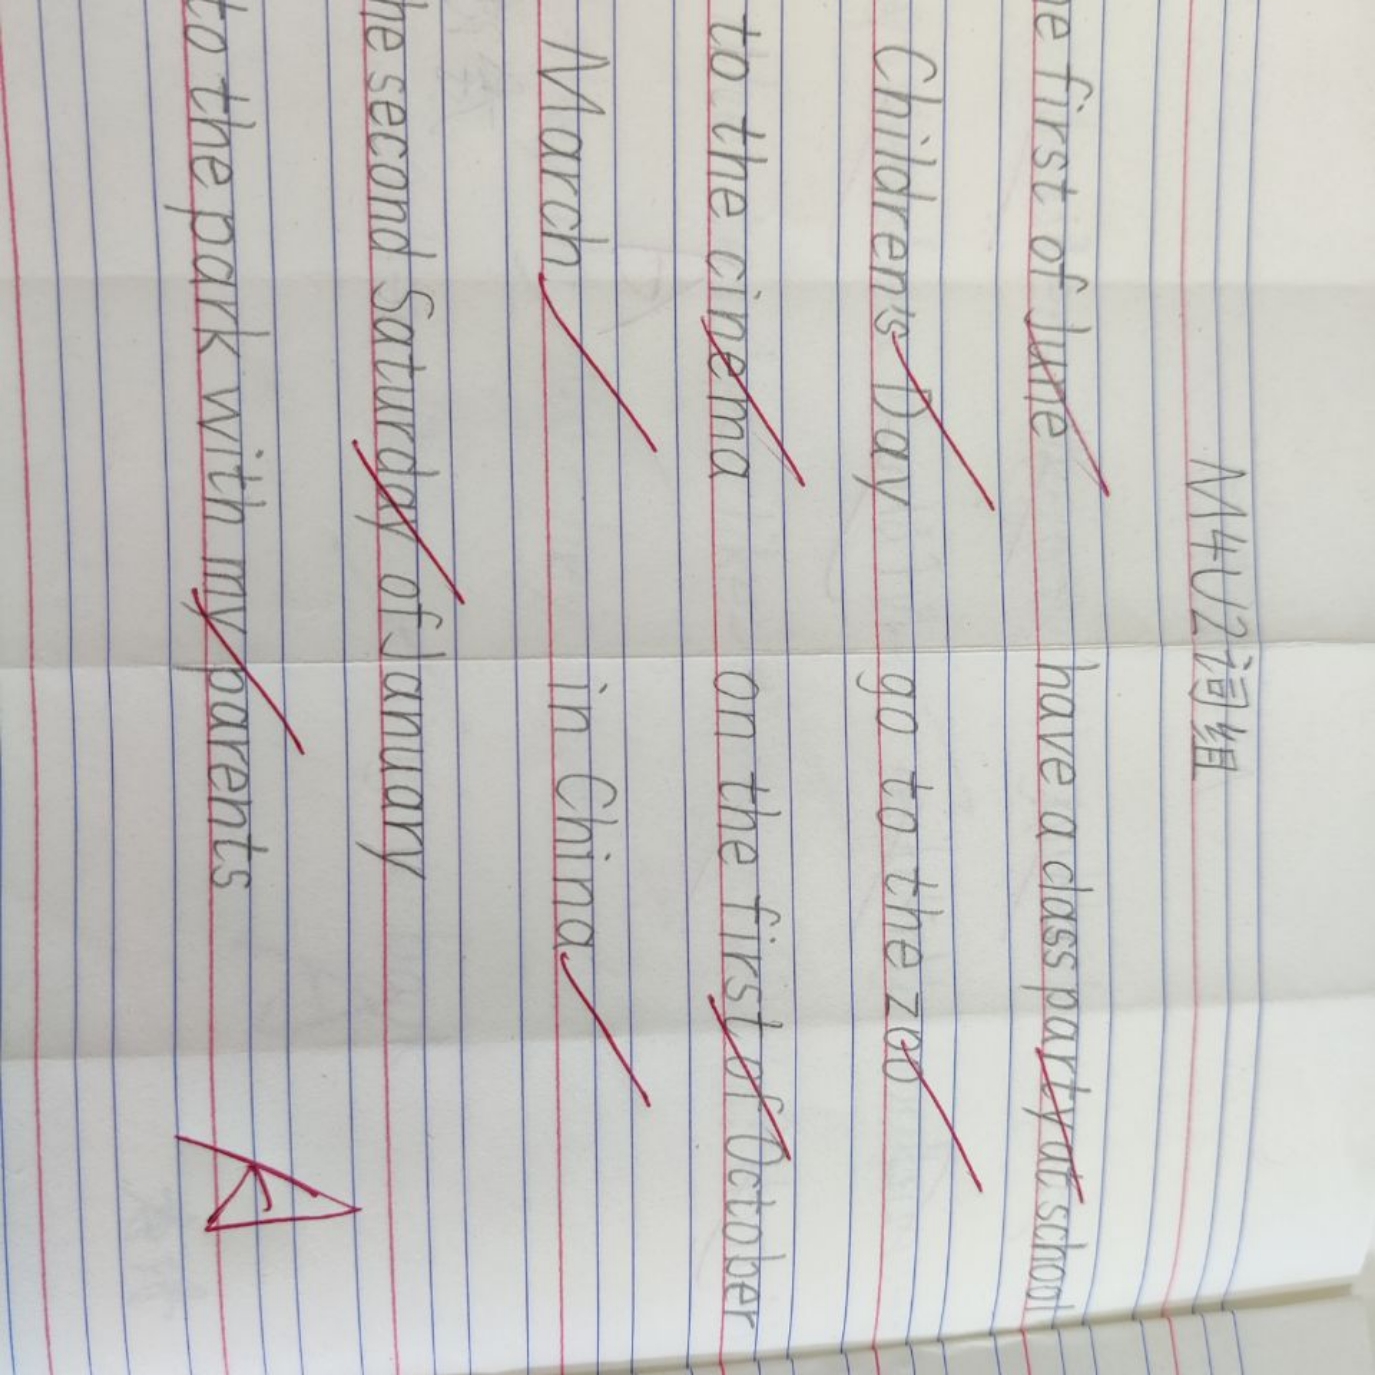 M4U2词组
he first of June have a class party at school
Children's Day go to the zoo
to the cinema on the first of October
March in China
he second Saturday of January
to the park with my parents
A